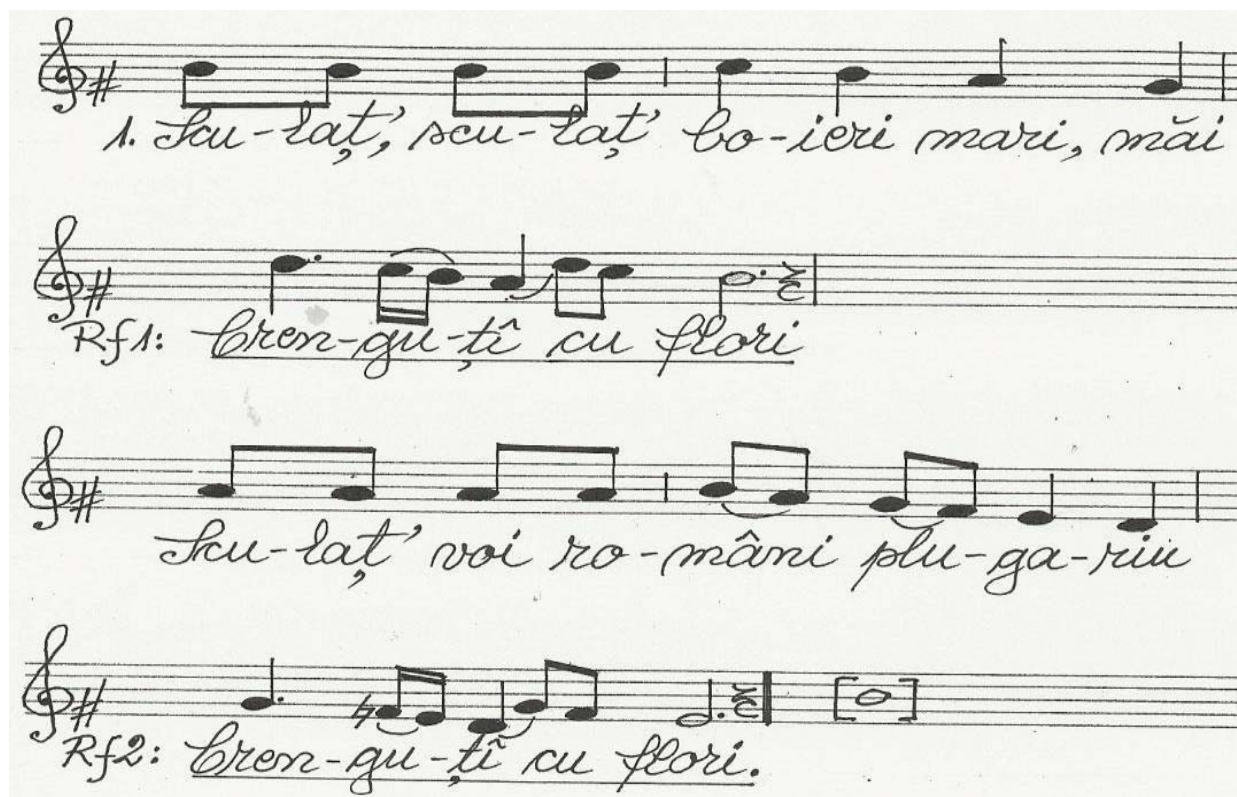 1. Scu-laț', scu-laț' bo-ieri mari, măi
Rf1: Cren-gu-țî cu flori
Scu-laț' voi ro-mâni plu-ga-riu
Rf2: Cren-gu-țî cu flori.